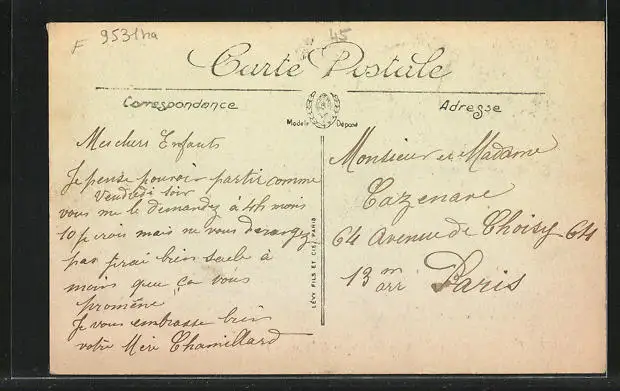 F 9531na
45
Carte Postale
Correspondance
Adresse
Modèle Déposé
Mes chers Enfants
Je pense pouvoir partir comme
Vendredi soir
vous me le demandez à 4h moins
10 je crois mais ne vous derangez
pas j'irai bien seule à
moins que ça vous
promène
Je vous embrasse bien
votre Mère Chamillard
LÉVY FILS ET CIE, PARIS
Monsieur et Madame
Cazenave
64 Avenue de Choisy 64
13 m arr Paris